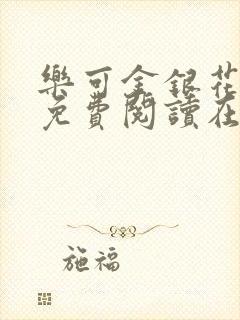 樂可金銀花
免費閱讀在
施福